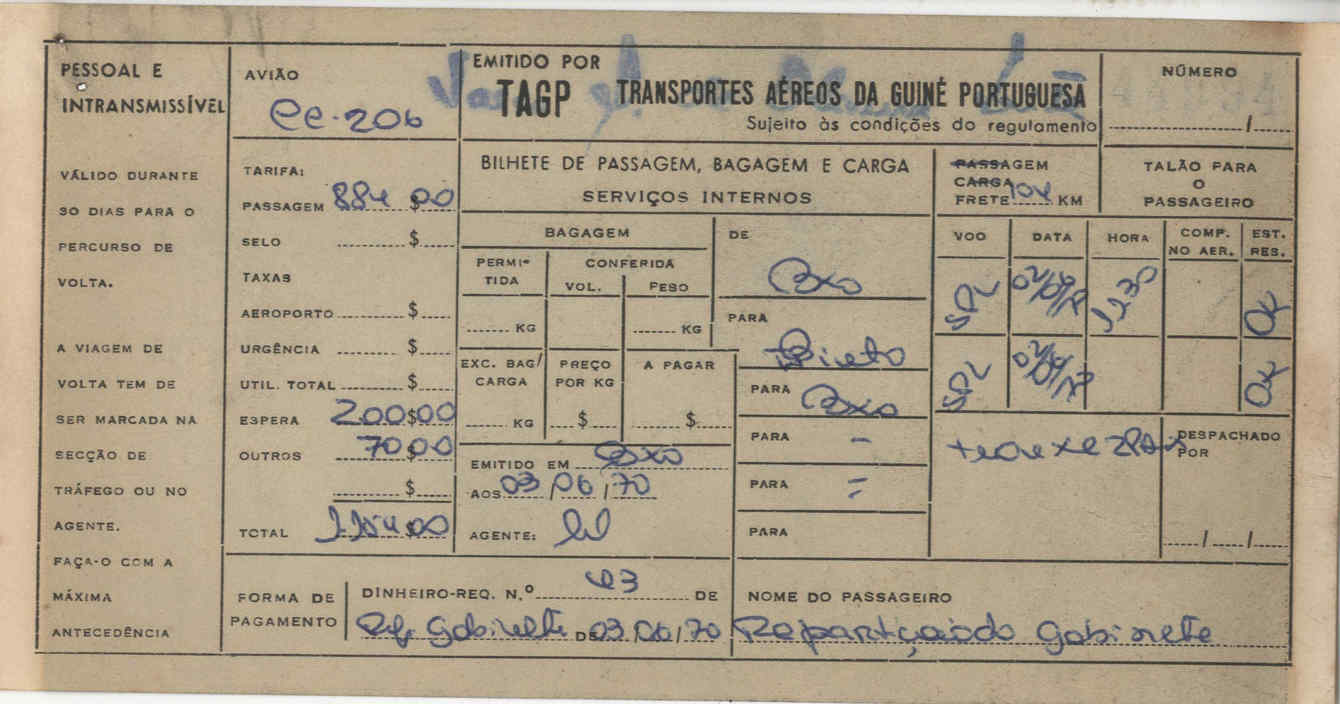 PESSOAL E
INTRANSMISSÍVEL
VÁLIDO DURANTE
30 DIAS PARA O
PERCURSO DE
VOLTA.
A VIAGEM DE
VOLTA TEM DE
SER MARCADA NA
SECÇÃO DE
TRÁFEGO OU NO
AGENTE.
FAÇA-O COM A
MÁXIMA
ANTECEDÊNCIA
AVIÃO
CC-206
TARIFA:
PASSAGEM 884$00
SELO $
TAXAS
AEROPORTO $
URGÊNCIA $
UTIL. TOTAL $
ESPERA 200$00
OUTROS 70$00
$
TOTAL 1.154$00
EMITIDO POR
TAGP TRANSPORTES AÉREOS DA GUINÉ PORTUGUESA
Sujeito às condições do regulamento
NÚMERO
/
BILHETE DE PASSAGEM, BAGAGEM E CARGA
SERVIÇOS INTERNOS
PASSAGEM
CARGA
FRETE 104 KM
TALÃO PARA
O
PASSAGEIRO
BAGAGEM
PERMI-
TIDA
CONFERIDA
VOL. PESO
KG KG
EXC. BAG/
CARGA
PREÇO
POR KG
A PAGAR
KG $ $
EMITIDO EM Bxo
AOS 03/06/70
AGENTE:
DE
Bxo
PARA
PARA
Bxo
PARA -
PARA =
PARA
VOO DATA HORA COMP.
NO AER. EST.
RES.
SPL 1130 OK
SPL OK
DESPACHADO
POR
/ /
FORMA DE
PAGAMENTO
DINHEIRO-REQ. N.º 43 DE
Rep. Gabinete DE 03/06/70
NOME DO PASSAGEIRO
Repartição do Gabinete